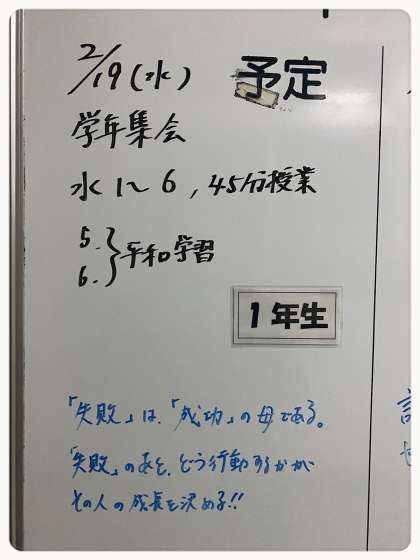 2/19(水) 予定
学年集会
水 1〜6, 45分授業
5.
6. } 平和学習
1年生
「失敗」は、「成功」の母である。
「失敗」のあと、どう行動するかが
その人の成長を決める!!